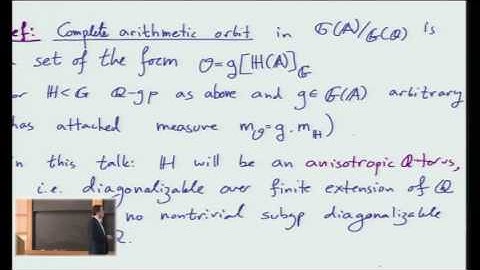 ef: Complete arithmetic orbit in G(A)/G(Q) is
set of the form O=g[H(A)]_G
or H<G Q-gp as above and g∈G(A) arbitrary
has attached measure m_O=g.m_H)
n this talk: H will be an anisotropic Q-torus,
i.e. diagonalizable over finite extension of Q
no nontrivial subgp diagonalizable